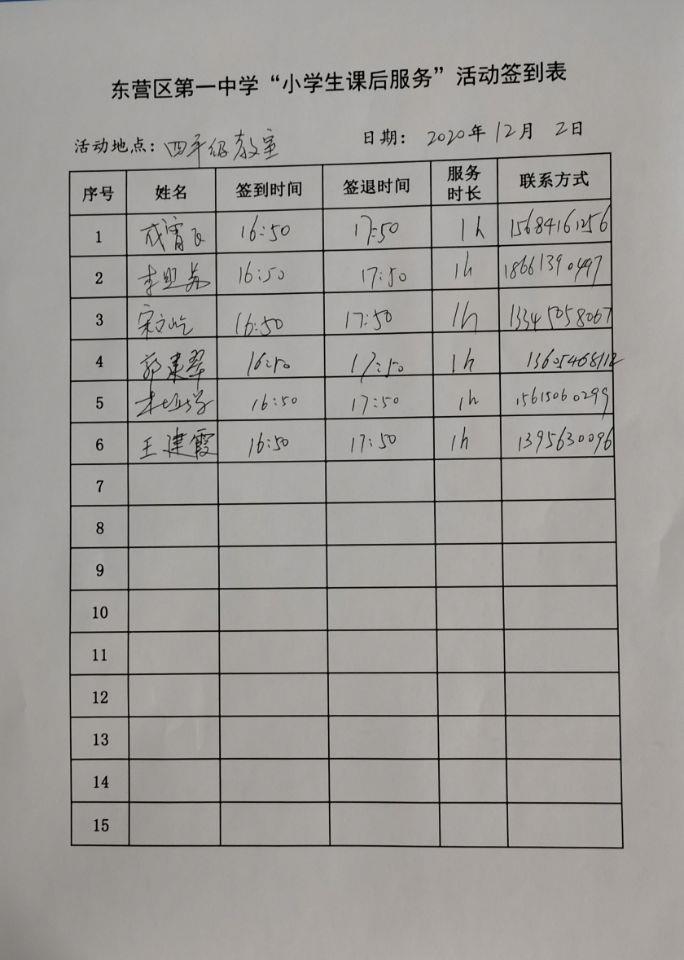 东营区第一中学“小学生课后服务”活动签到表
活动地点：四年级教室 日期： 2020年12月 2日
序号 姓名 签到时间 签退时间 服务时长 联系方式
1 16:50 17:50 1h 15684161256
2 16:50 17:50 1h 18661390497
3 宋文屹 16:50 17:50 1h 13345058067
4 郭建翠 16:50 17:50 1h 13605468112
5 16:50 17:50 1h 15615060299
6 王建霞 16:50 17:50 1h 1395630096
7
8
9
10
11
12
13
14
15